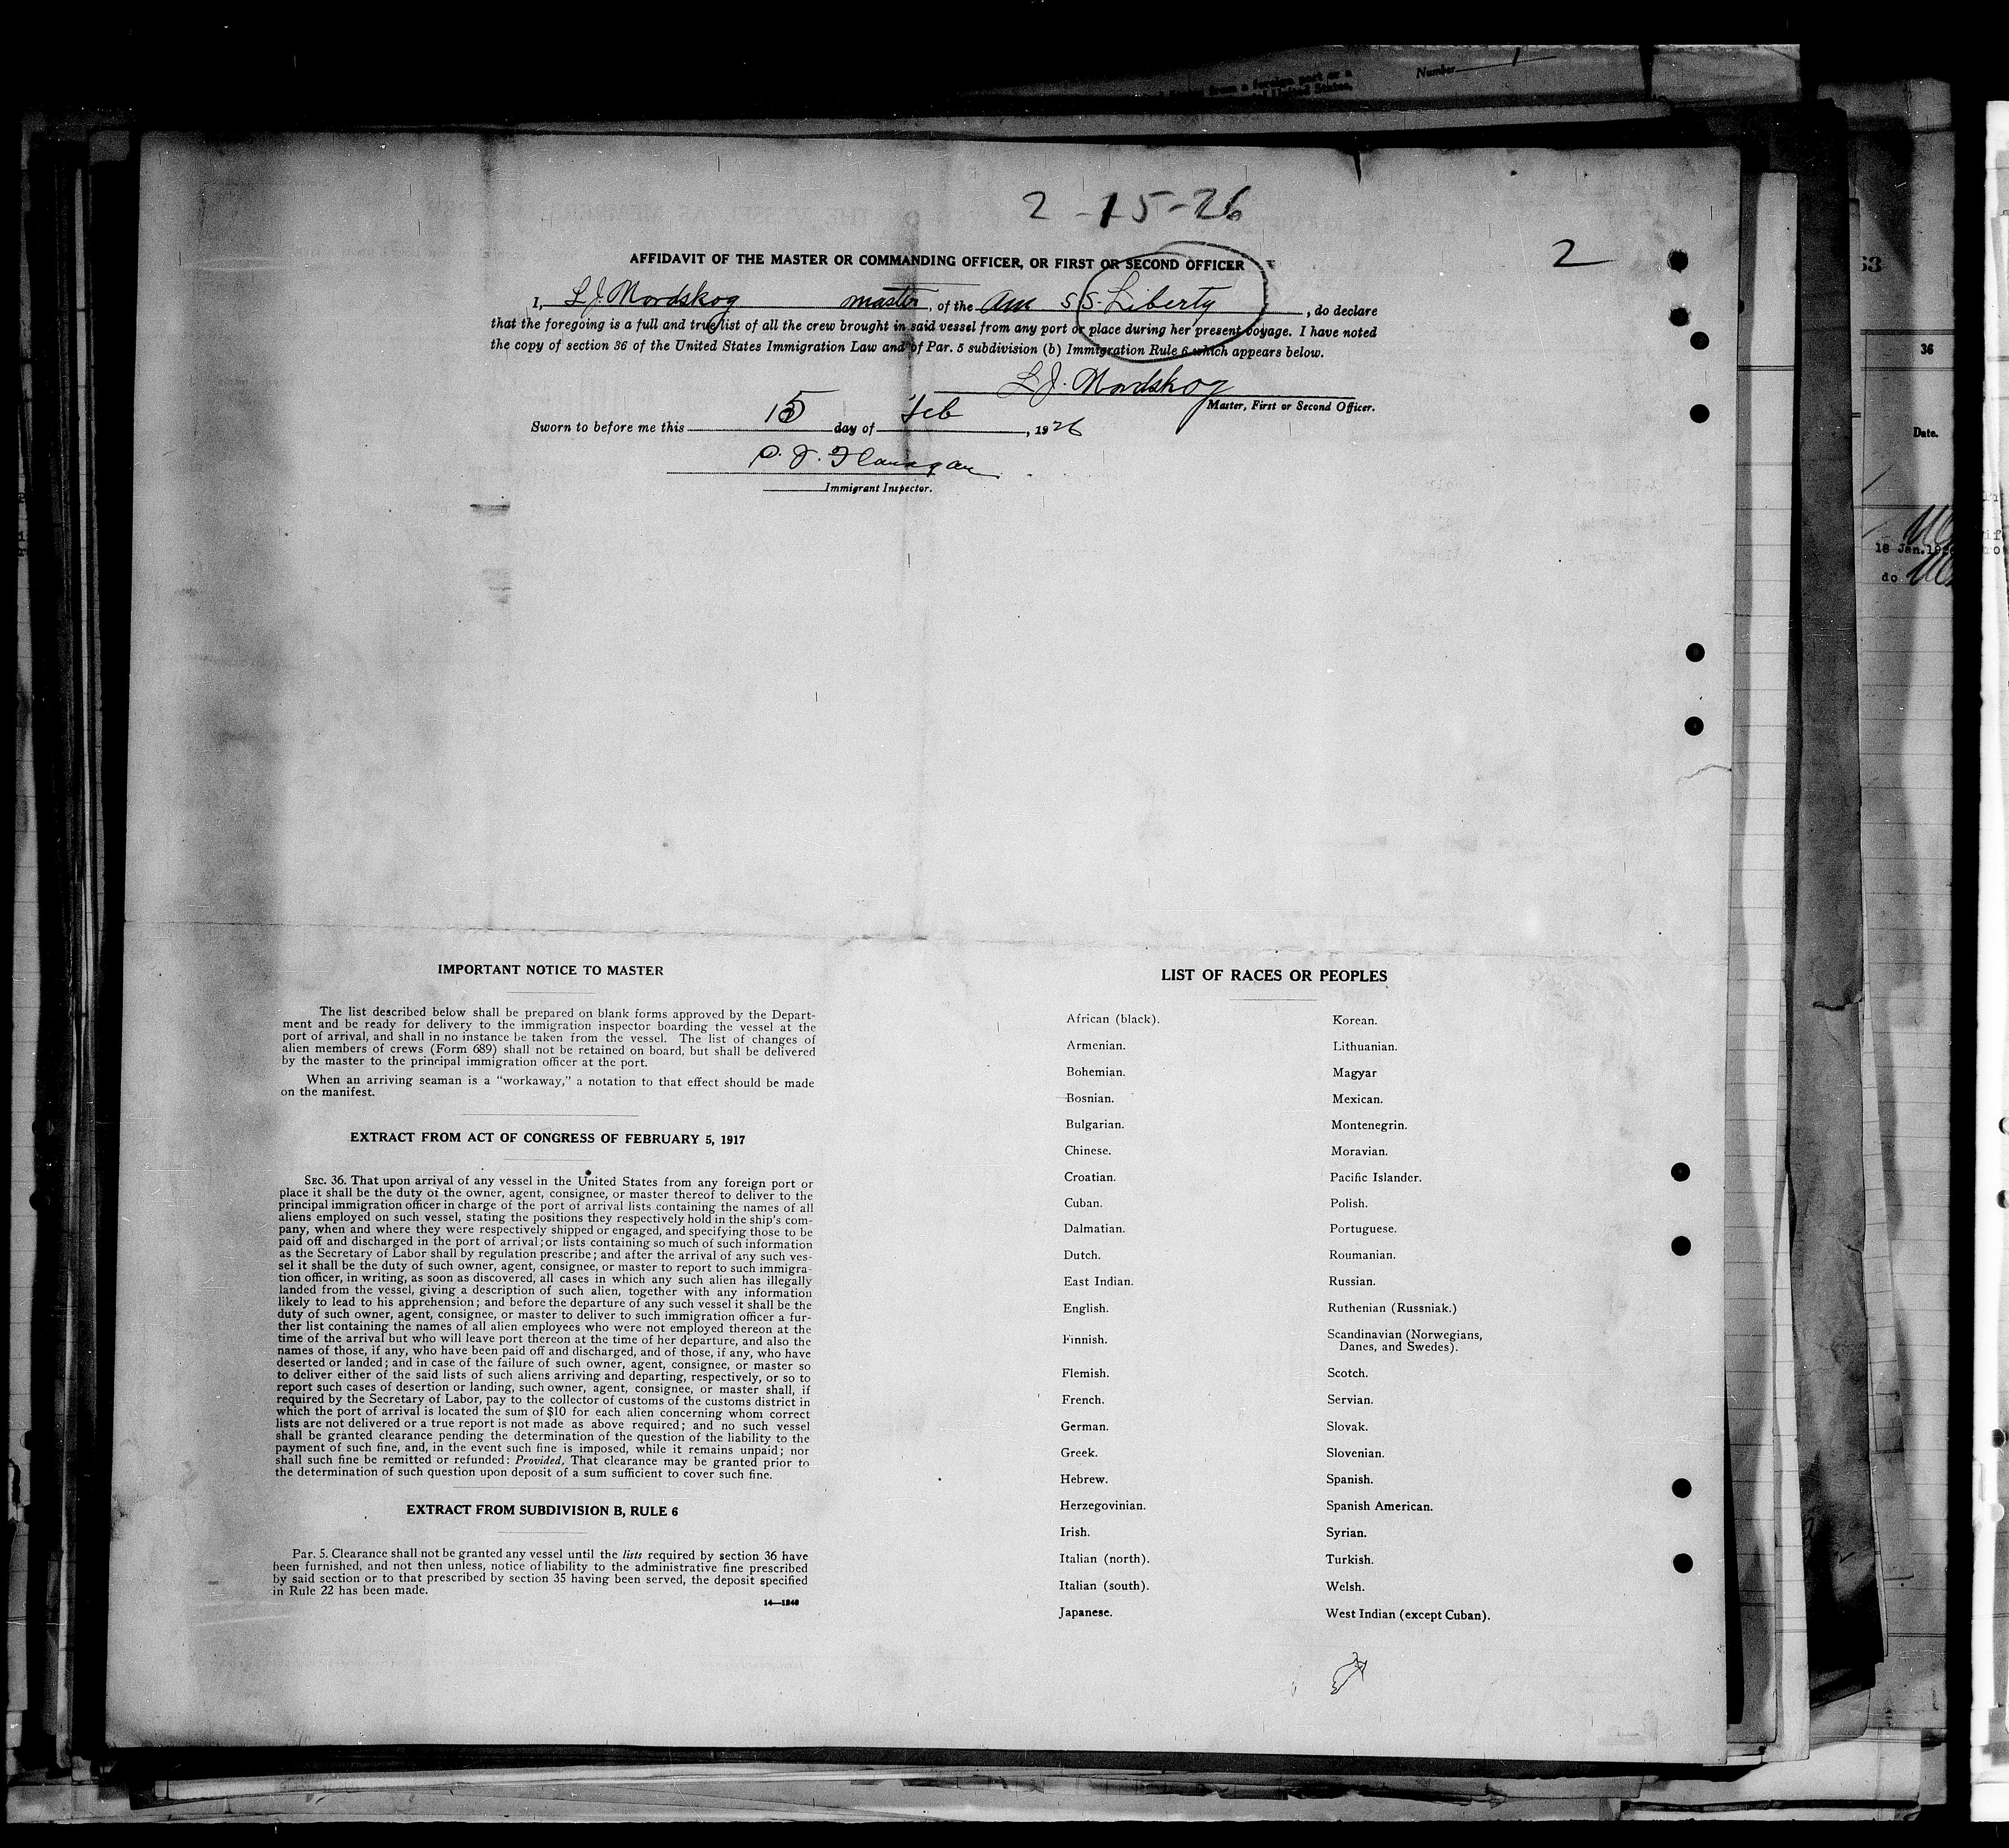 Number 1
from a foreign port or a
United States,
2-15-26
2
AFFIDAVIT OF THE MASTER OR COMMANDING OFFICER, OR FIRST OR SECOND OFFICER
I, L J. Nordskog master, of the Am S S. Liberty, do declare
that the foregoing is a full and true list of all the crew brought in said vessel from any port or place during her present voyage. I have noted
the copy of section 36 of the United States Immigration Law and of Par. 5 subdivision (b) Immigration Rule 6 which appears below.
L J. Nordskog
Master, First or Second Officer.
Sworn to before me this 15 day of Feb, 1926
P. J. Flanagan
Immigrant Inspector.
IMPORTANT NOTICE TO MASTER
The list described below shall be prepared on blank forms approved by the Depart-
ment and be ready for delivery to the immigration inspector boarding the vessel at the
port of arrival, and shall in no instance be taken from the vessel. The list of changes of
alien members of crews (Form 689) shall not be retained on board, but shall be delivered
by the master to the principal immigration officer at the port.
When an arriving seaman is a "workaway," a notation to that effect should be made
on the manifest.
EXTRACT FROM ACT OF CONGRESS OF FEBRUARY 5, 1917
SEC. 36. That upon arrival of any vessel in the United States from any foreign port or
place it shall be the duty of the owner, agent, consignee, or master thereof to deliver to the
principal immigration officer in charge of the port of arrival lists containing the names of all
aliens employed on such vessel, stating the positions they respectively hold in the ship's com-
pany, when and where they were respectively shipped or engaged, and specifying those to be
paid off and discharged in the port of arrival; or lists containing so much of such information
as the Secretary of Labor shall by regulation prescribe; and after the arrival of any such ves-
sel it shall be the duty of such owner, agent, consignee, or master to report to such immigra-
tion officer, in writing, as soon as discovered, all cases in which any such alien has illegally
landed from the vessel, giving a description of such alien, together with any information
likely to lead to his apprehension; and before the departure of any such vessel it shall be the
duty of such owner, agent, consignee, or master to deliver to such immigration officer a fur-
ther list containing the names of all alien employees who were not employed thereon at the
time of the arrival but who will leave port thereon at the time of her departure, and also the
names of those, if any, who have been paid off and discharged, and of those, if any, who have
deserted or landed; and in case of the failure of such owner, agent, consignee, or master so
to deliver either of the said lists of such aliens arriving and departing, respectively, or so to
report such cases of desertion or landing, such owner, agent, consignee, or master shall, if
required by the Secretary of Labor, pay to the collector of customs of the customs district in
which the port of arrival is located the sum of $10 for each alien concerning whom correct
lists are not delivered or a true report is not made as above required; and no such vessel
shall be granted clearance pending the determination of the question of the liability to the
payment of such fine, and, in the event such fine is imposed, while it remains unpaid; nor
shall such fine be remitted or refunded: Provided, That clearance may be granted prior to
the determination of such question upon deposit of a sum sufficient to cover such fine.
EXTRACT FROM SUBDIVISION B, RULE 6
Par. 5. Clearance shall not be granted any vessel until the lists required by section 36 have
been furnished, and not then unless, notice of liability to the administrative fine prescribed
by said section or to that prescribed by section 35 having been served, the deposit specified
in Rule 22 has been made.
14—1240
LIST OF RACES OR PEOPLES
African (black).
Armenian.
Bohemian.
Bosnian.
Bulgarian.
Chinese.
Croatian.
Cuban.
Dalmatian.
Dutch.
East Indian.
English.
Finnish.
Flemish.
French.
German.
Greek.
Hebrew.
Herzegovinian.
Irish.
Italian (north).
Italian (south).
Japanese.
Korean.
Lithuanian.
Magyar
Mexican.
Montenegrin.
Moravian.
Pacific Islander.
Polish.
Portuguese.
Roumanian.
Russian.
Ruthenian (Russniak.)
Scandinavian (Norwegians,
Danes, and Swedes).
Scotch.
Servian.
Slovak.
Slovenian.
Spanish.
Spanish American.
Syrian.
Turkish.
Welsh.
West Indian (except Cuban).
53
36
Date.
18 Jan.
do